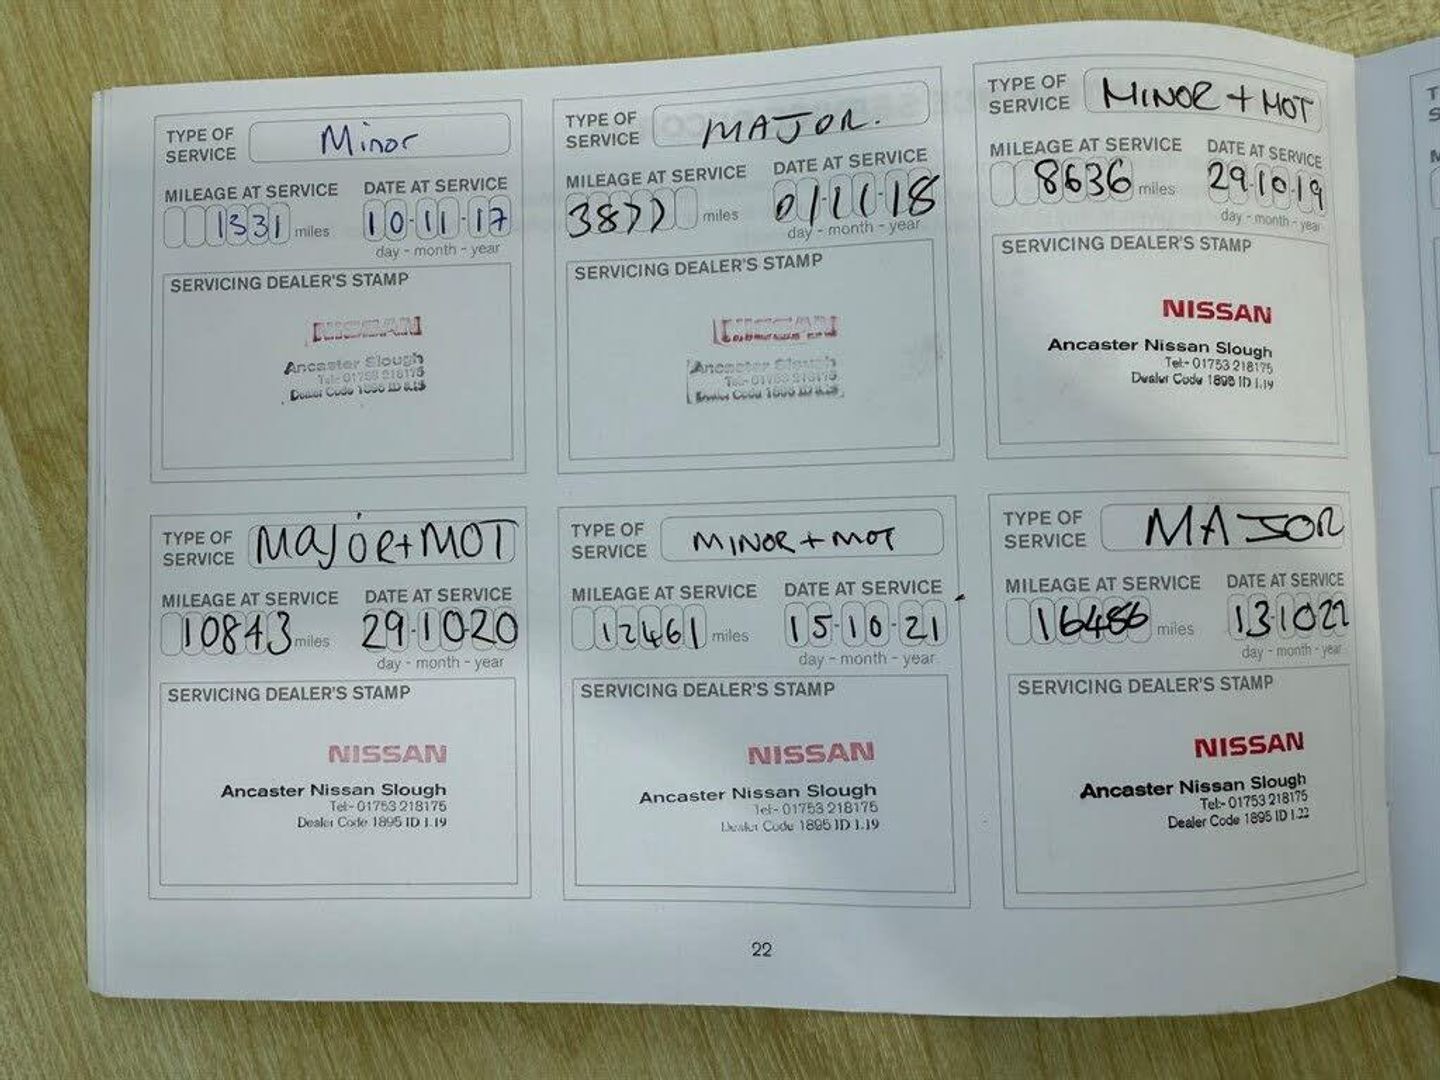 TYPE OF SERVICE Minor
MILEAGE AT SERVICE DATE AT SERVICE
1331 miles 10-11-17
day - month - year
SERVICING DEALER'S STAMP
NISSAN
Ancaster Slough
Tel:- 01753 218175
Dealer Code 1895 ID
TYPE OF SERVICE MAJOR.
MILEAGE AT SERVICE DATE AT SERVICE
3877 miles 01-11-18
day - month - year
SERVICING DEALER'S STAMP
NISSAN
Ancaster Slough
Tel:- 01753 218175
Dealer Code
TYPE OF SERVICE MINOR + MOT
MILEAGE AT SERVICE DATE AT SERVICE
8636 miles 29-10-19
day - month - year
SERVICING DEALER'S STAMP
NISSAN
Ancaster Nissan Slough
Tel:- 01753 218175
Dealer Code 1895 ID 1.19
TYPE OF SERVICE MAJOR + MOT
MILEAGE AT SERVICE DATE AT SERVICE
10843 miles 29-10-20
day - month - year
SERVICING DEALER'S STAMP
NISSAN
Ancaster Nissan Slough
Tel:- 01753 218175
Dealer Code 1895 ID 1.19
TYPE OF SERVICE MINOR + MOT
MILEAGE AT SERVICE DATE AT SERVICE
12461 miles 15-10-21
day - month - year
SERVICING DEALER'S STAMP
NISSAN
Ancaster Nissan Slough
Tel:- 01753 218175
Dealer Code 1895 ID 1.19
TYPE OF SERVICE MAJOR
MILEAGE AT SERVICE DATE AT SERVICE
16486 miles 13-10-22
day - month - year
SERVICING DEALER'S STAMP
NISSAN
Ancaster Nissan Slough
Tel:- 01753 218175
Dealer Code 1895 ID 1.22
22